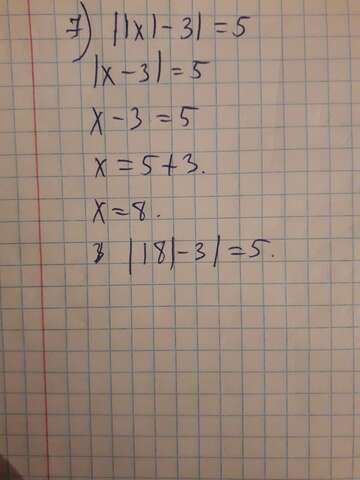 7) ||x|-3|=5
|x-3|=5
x-3=5
x=5+3.
x=8.
|18|-3|=5.